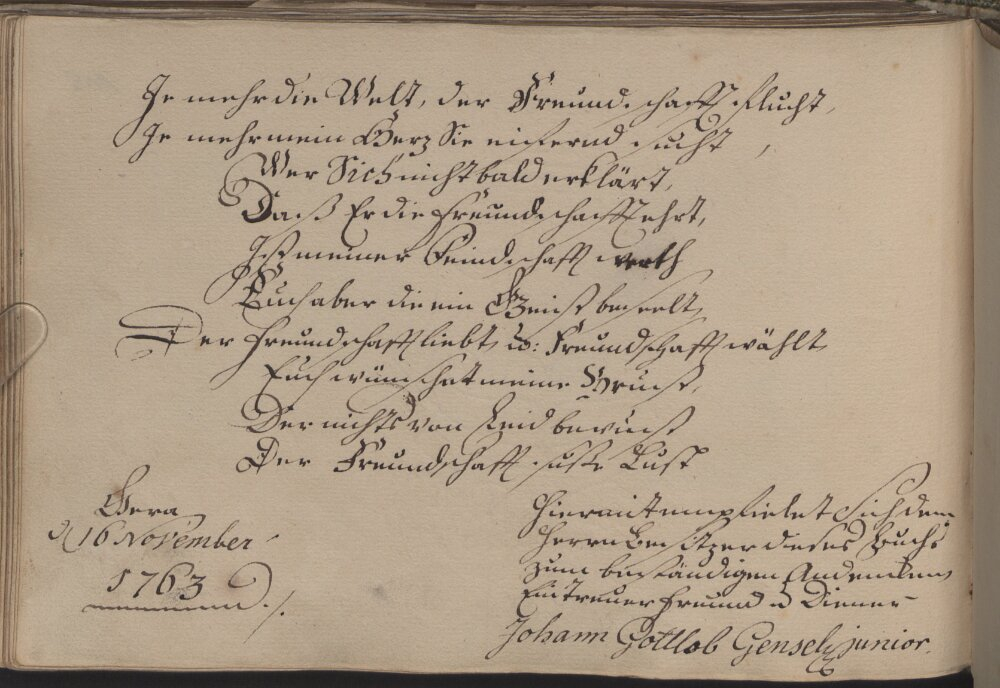 Je mehr die Welt, der Freundschafft flucht,
Je mehr mein Herz Sie eifernd sucht,
Wer Sich nicht bald erklärt,
Daß Er die Freundschafft ehrt,
Ist meiner Feindschafft werth
Euch aber die ein Geist beseelt,
Der Freundschafft liebt, u: Freundschafft wählt
Euch wünschet meine Brust,
Der nichts von Leid bewust
Der Freundschafft süße Lust
Gera
d 16 November
1763
Hiermit empfielet Sich dem
Herrn Besitzer dieses Buchs
zum beständigen Andencken
Ein treuer Freund u Diener
Johann Gottlob Gensel junior.